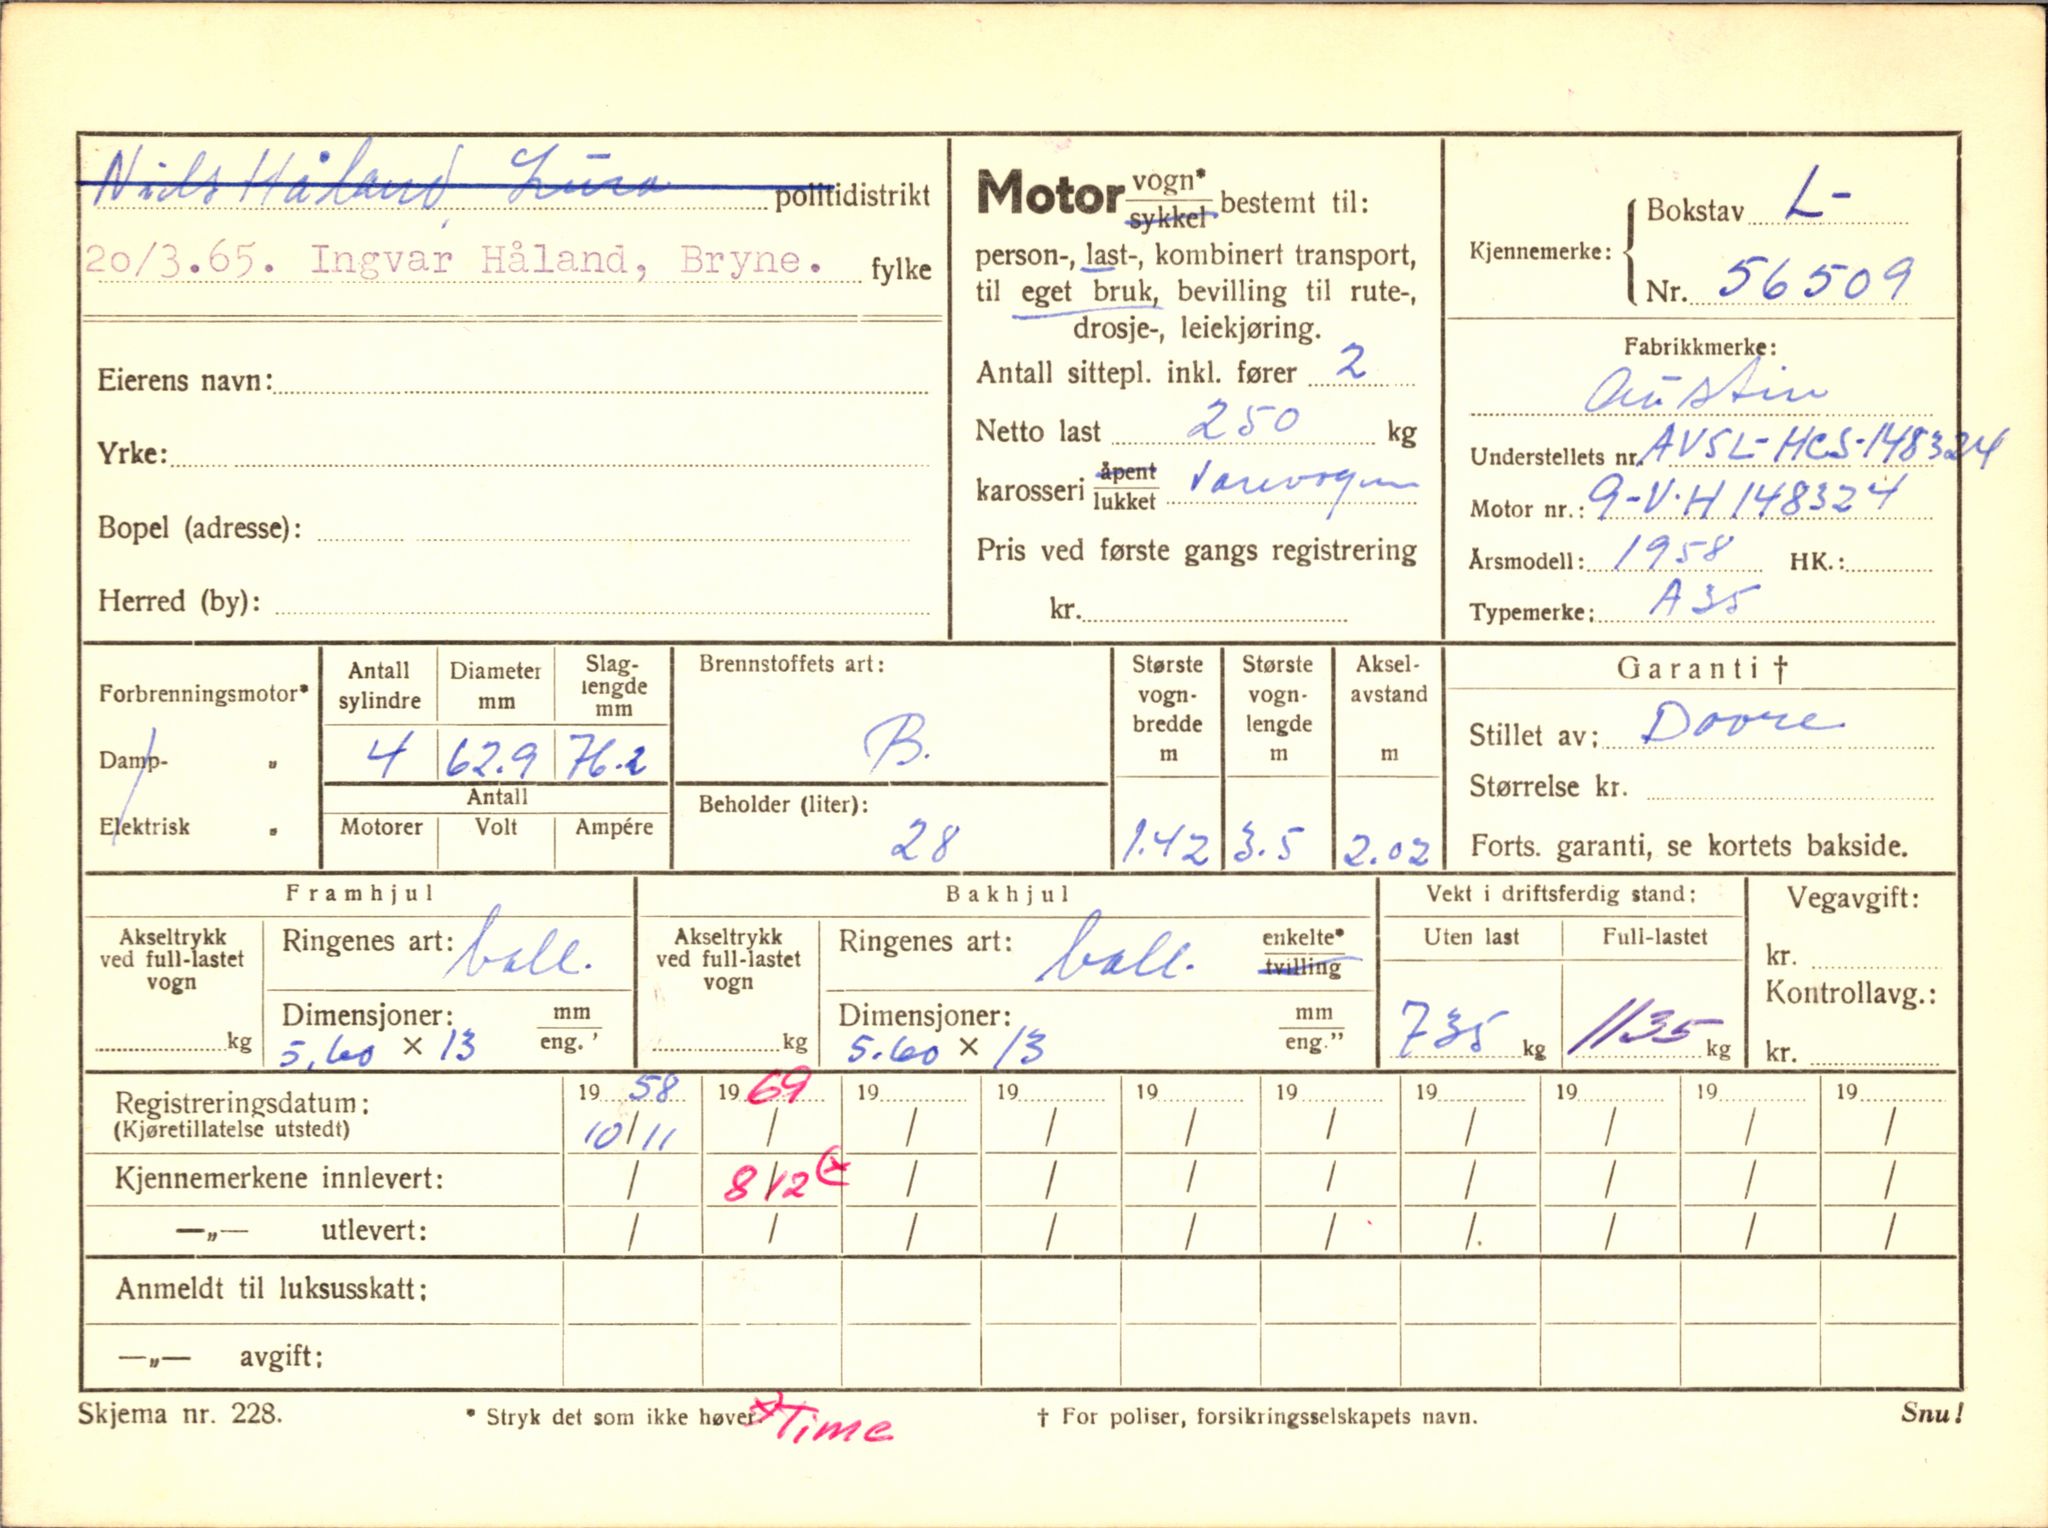 Niels Håland, Lura politidistrikt
20/3.65. Ingvar Håland, Bryne. fylke
Eierens navn:
Yrke:
Bopel (adresse):
Herred (by):
Motor vogn* sykkel bestemt til:
person-, last-, kombinert transport,
til eget bruk, bevilling til rute-,
drosje-, leiekjøring.
Antall sittepl. inkl. fører 2
Netto last 250 kg
karosseri åpent lukket Varevogn
Pris ved første gangs registrering
kr.
Kjennemerke: Bokstav L-
Nr. 56509
Fabrikkmerke:
Austin
Understellets nr. AVSL-HCS-148324
Motor nr.: 9-V·H 148324
Årsmodell: 1958 HK.:
Typemerke: A35
Forbrenningsmotor*
Damp- „
Elektrisk „
Antall sylindre
Diameter mm
Slag-lengde mm
4 62.9 76.2
Antall
Motorer Volt Ampére
Brennstoffets art:
B.
Beholder (liter):
28
Største vogn-bredde m
1.42
Største vogn-lengde m
3.5
Aksel-avstand m
2.02
Garanti †
Stillet av: Dovre
Størrelse kr.
Forts. garanti, se kortets bakside.
Framhjul
Akseltrykk ved full-lastet vogn
kg
Ringenes art: ball.
Dimensjoner: mm eng.'
5.60 × 13
Bakhjul
Akseltrykk ved full-lastet vogn
kg
Ringenes art: ball. enkelte* tvilling
Dimensjoner: mm eng."
5.60 × 13
Vekt i driftsferdig stand:
Uten last Full-lastet
735 kg 1135 kg
Vegavgift:
kr.
Kontrollavg.:
kr.
Registreringsdatum: 19 58 19 69 19 19 19 19 19 19 19 19
(Kjøretillatelse utstedt) 10/11 / / / / / / / / /
Kjennemerkene innlevert: / 8/12 (x / / / / / / / /
—„— utlevert: / / / / / / / / / /
Anmeldt til luksusskatt:
—„— avgift:
Skjema nr. 228. * Stryk det som ikke høver. x) Time † For poliser, forsikringsselskapets navn. Snu!